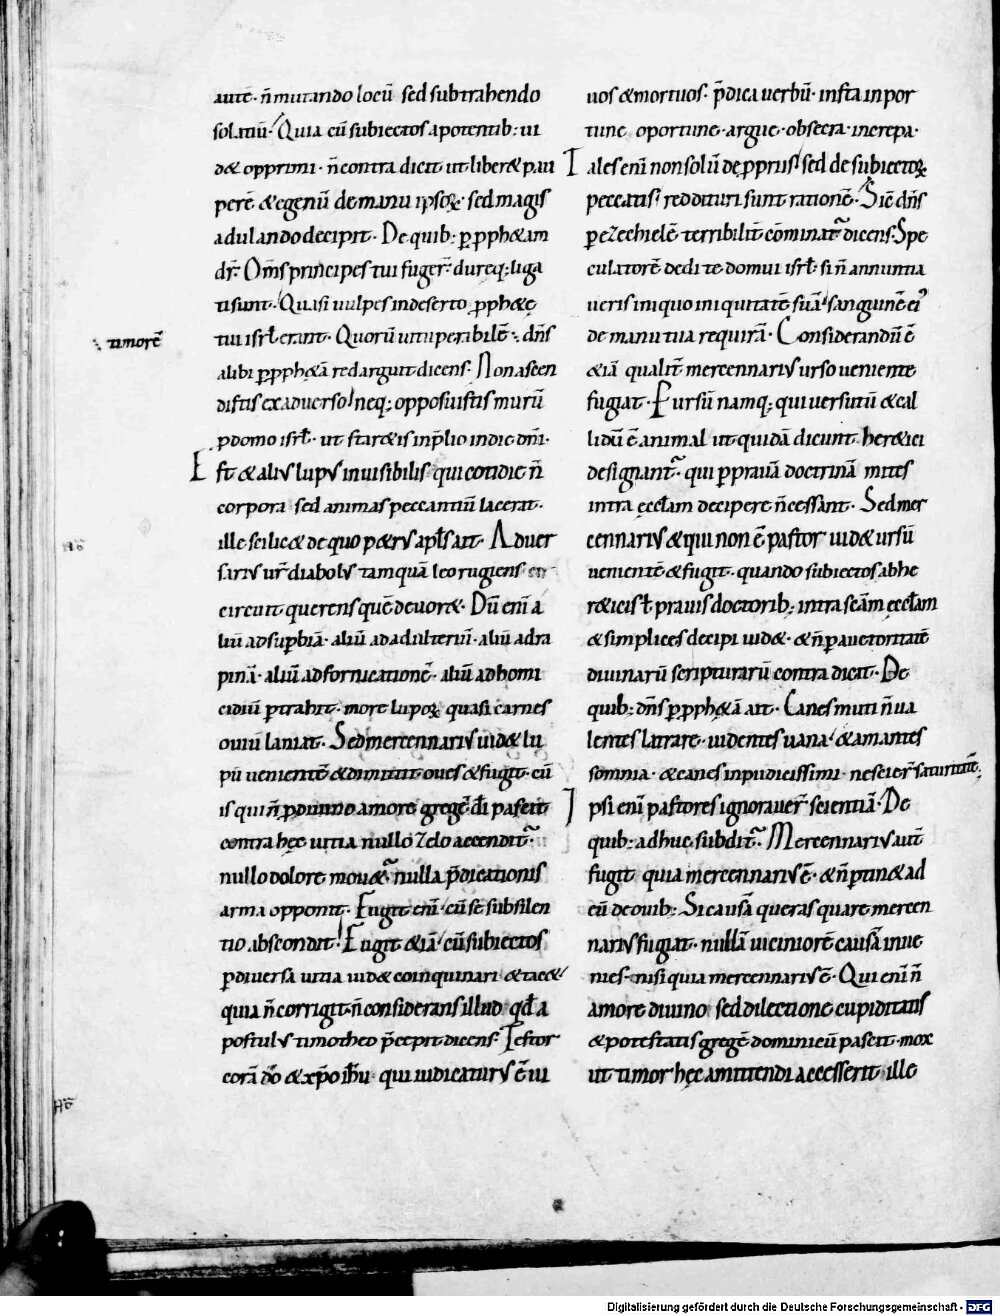 autē· n̄ mutando locū sed subtrahendo
solatiū· Quia cū subiectos a potentib; ui
d& opprimi· n̄ contra dicit ut liber& pau
perē & egenū de manu ipsoꝝ· sed magis
adulando decipit· De quib; ꝑ ꝓph&am
dr̄· Om̄s principes tui fuger̄· dureq; liga
ti sunt· Quasi uulpes in deserto ꝓph&ę
tui isrł erant· Quorū uituperabilē· dn̄s
timorē
alibi ꝑ ꝓph&ā redarguit dicens· Non ascen
distis ex aduerso neq; opposuistis murū
ꝓ domo isrł· ut star&is in p̄lio in die dn̄i·
Est & aliꝰ lupꝰ inuisibilis qui cotidie n̄
corpora sed animas peccantiū lacerat·
ille scilic& de quo p&rꝰ apłs ait· Aduer
sariꝰ ur̄ diabolꝰ tamquā leo rugiens
circuit querens quē deuor&· Dū enī a
liū ad suꝑbiā· aliū ad adulteriū· aliū ad ra
pinā· aliū ad fornicationē· aliū ad homi
cidiū ꝑtrahit· more lupoꝝ quasi carnes
ouiū laniat· Sed mercennariꝰ uid& lu
pū uenientē & dimittit oues & fugit· cū
is qui n̄ ꝓ diuino amore gregē dī pascit
contra hęc uitia nullo zelo accendit᷑·
nullo dolore mou&᷑ nulla p̄dicationis
arma opponit· Fugit enī· cū sē sub silen
tio abscondit· Fugit &iā cū subiectos
ꝑ diuersa uitia uid& coinquinari & tac&
quia n̄ corrigit· n̄ considerans illud qđ a
postulꝰ timotheo p̄cepit dicens· Testor
corā dō & xp̄o ihū· qui iudicaturꝰ ē ui
uos & mortuos· p̄dica uerbū· insta inpor
tune oportune· argue· obsecra· increpa·
Tales enī non solū de ꝓpriis sed de subiectoꝝ
peccatis reddituri sunt rationē· Sic̄ dn̄s
ꝑ ezechielē terribilit̄ cōminat᷑ dicens· Spe
culatorē dedi te domui isrł· si n̄ annuntia
ueris iniquo iniquitatē suā· sanguinē eiꝰ
de manu tua requirā· Considerandū ē
&iā qualit̄ mercennariꝰ urso ueniente
fugiat· Ꝑ ursū namq; qui uersutū & cal
lidū ē animal ut quidā dicunt her&ici
designant᷑· qui ꝑ prauā doctrinā mites
intra eccłam decipere n̄ cessant· Sed mer
cennariꝰ & qui non ē pastor uid& ursū
uenientē & fugit· quando subiectos ab he
r&icis ł prauis doctorib; intra scām eccłam
& simplices decipi uid&· & n̄ ꝑ auctoritatē
diuinarū scripturarū contra dicit· De
quib; dn̄s ꝑ ꝓph&ā ait· Canes muti n̄ ua
lentes latrare· uidentes uana & amantes
somnia· & canes inpudicissimi nescier̄ saturitatē;
Ipsi enī pastores ignorauer̄ scientiā· De
quib; adhuc subdit᷑· Mercennariꝰ autē
fugit quia mercennariꝰ ē· & n̄ ꝑtin& ad
eū de ouib; Si causā queras quare mercen
nariꝰ fugiat· nullā uiciniorē causā inue
nies· nisi quia mercennariꝰ ē· Qui enī n̄
amore diuino sed dilectione cupiditatis
& potestatis gregē dominicū pascit· mox
ut timor hęc amittendi accesserit· ille
Digitalisierung gefördert durch die Deutsche Forschungsgemeinschaft - DFG